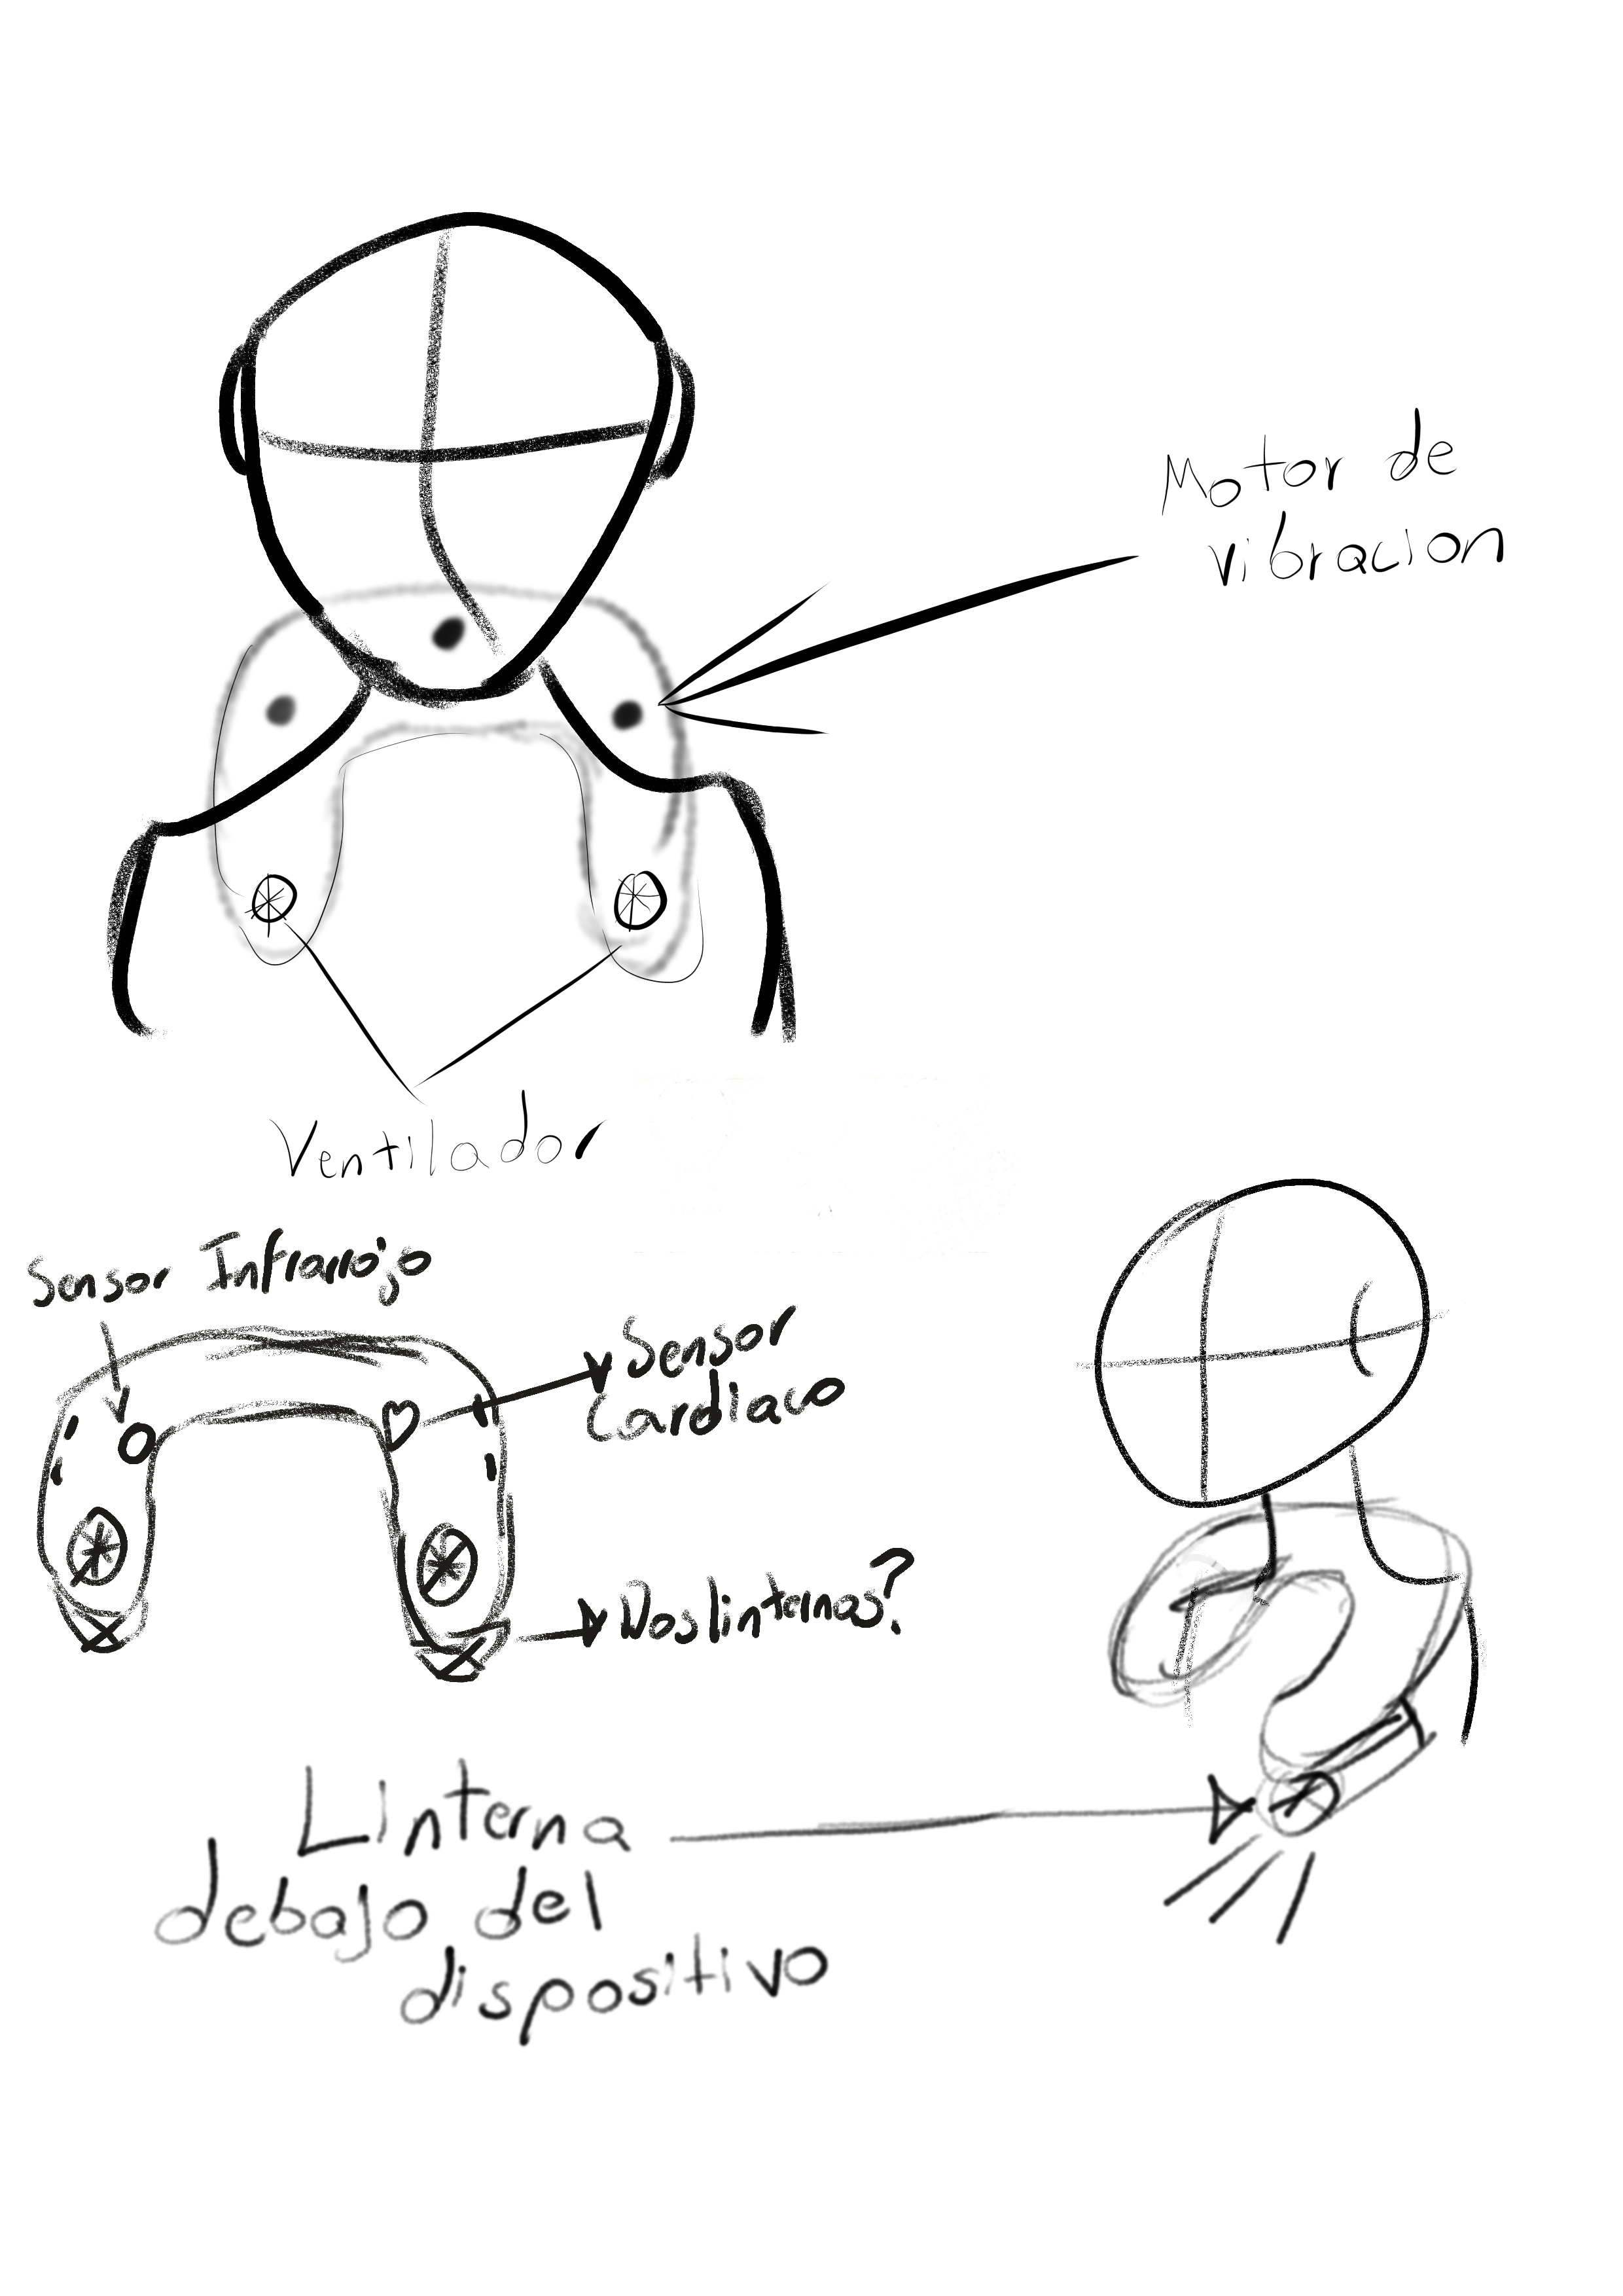 Motor de
vibracion
Ventilador
Sensor Infrarrojo
Sensor
Cardiaco
Dos linternas?
Linterna
debajo del
dispositivo